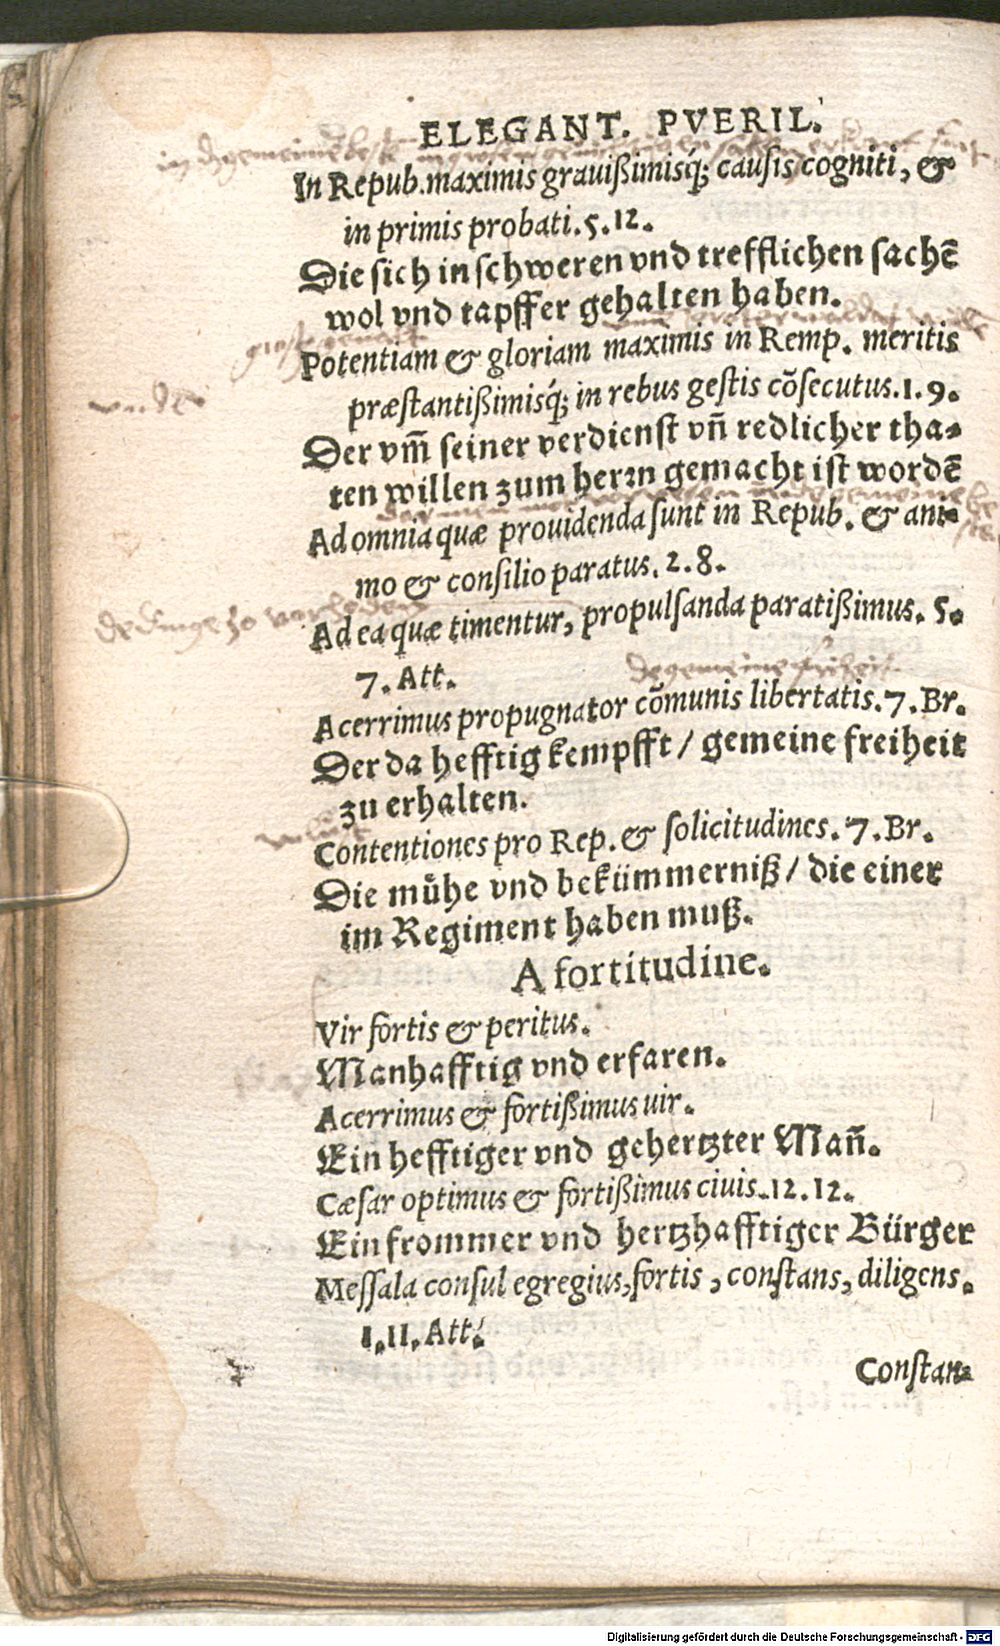 ELEGANT. PVERIL.
In Repub. maximis grauißimisq́; causis cogniti, &
in primis probati. 5. 12.
Die sich in schweren vnd trefflichen sachē
wol vnd tapffer gehalten haben.
Potentiam & gloriam maximis in Remp. meritis
præstantißimisq́; in rebus gestis cõsecutus. 1. 9.
Der vm̃ seiner verdienst vñ redlicher tha⸗
ten willen zum herꝛn gemacht ist wordē
Ad omnia quæ prouidenda sunt in Repub. & ani⸗
mo & consilio paratus. 2. 8.
de dinge zo
Ad ea quæ timentur, propulsanda paratißimus. 5.
7. Att.
de gemeine friheit
Acerrimus propugnator cõmunis libertatis. 7. Br.
Der da hefftig kempfft / gemeine freiheit
zu erhalten.
Contentiones pro Rep. & solicitudines. 7. Br.
Die mühe vnd bekümmerniß / die einer
im Regiment haben muß.
A fortitudine.
Vir fortis & peritus.
Manhafftig vnd erfaren.
Acerrimus & fortißimus uir.
Ein hefftiger vnd gehertzter Mañ.
Cæsar optimus & fortißimus ciuis. 12. 12.
Ein frommer vnd hertzhafftiger Bürger
Messala consul egregius, fortis, constans, diligens.
1. 11. Att.
Constan⸗
Digitalisierung gefördert durch die Deutsche Forschungsgemeinschaft - DFG